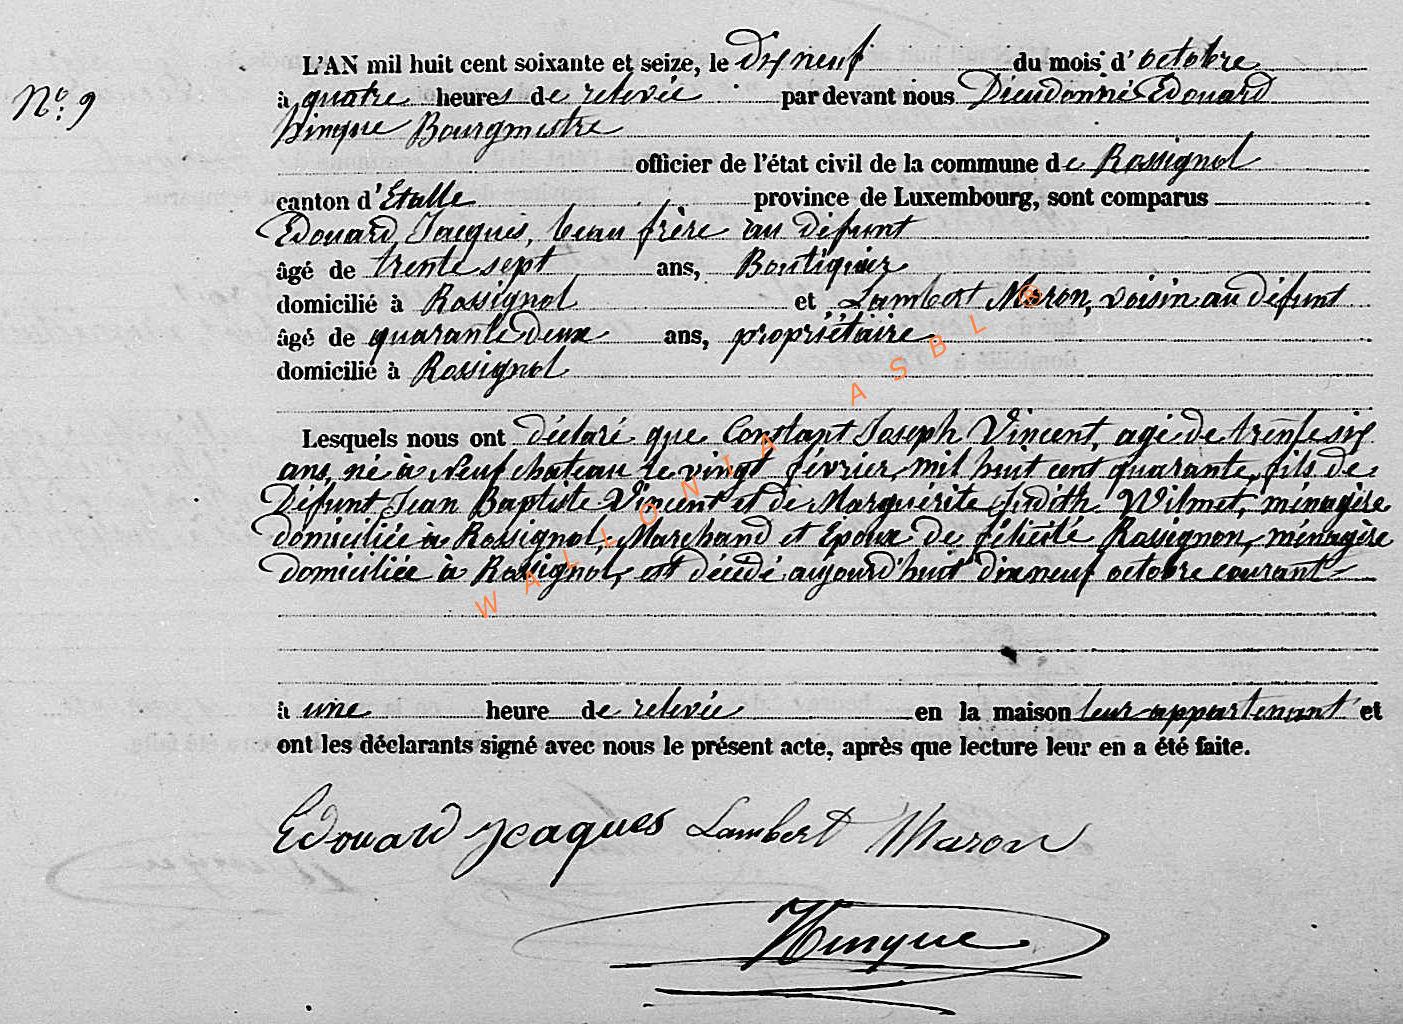 L'AN mil huit cent soixante et seize, le Dix neuf du mois d'octobre
N°. 9
à quatre heures de relevée par devant nous Dieudonné Edouard
hinque Bourgmestre
officier de l'état civil de la commune de Rossignol
canton d'Etalle province de Luxembourg, sont comparus
Edouard Jacques, beau frère au défunt
âgé de trente sept ans, Boutiquier
domicilié à Rossignol et Lambert Maron, voisin au défunt
âgé de quarante deux ans, propriétaire
domicilié à Rossignol
Lesquels nous ont déclaré que Constant Joseph Vincent, agé de trente six
ans, né à Neufchateau le vingt février mil huit cent quarante, fils de
Défunt Jean Baptiste Vincent et de Marguérite Judith Wilmet, ménagère
domiciliée à Rossignol, Marchand et Epoux de félicité Rossignon, ménagère
domiciliée à Rossignol, est décédé aujourd'hui dixneuf octobre courant
à une heure de relevée en la maison leur appartenant et
ont les déclarants signé avec nous le présent acte, après que lecture leur en a été faite.
Edouard Jcaques Lambert Maron
Hinque
WALLONIA ASBL ®